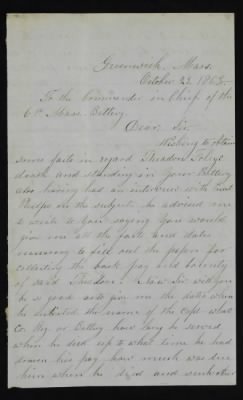 Greenwich, Mass.
October 23. 1863.
To the Commander in Chief of the
6th Mass. Battery
Dear Sir.
Wishing to obtain
some facts in regard Theodore
death and standing in your Battery
also having had an interview with Lieut
Phelps on the subject. he advised me
to write to you saying you would
give me all the facts and dates
necessary to fill out the papers for
collecting the back pay and bounty
of said Theodore. Now Sir will you
be so good as to give me the date when
he enlisted the name of the Capt what
Co. Reg. or Battery how long he served
when he died up to what time he had
drawn his pay, how much was due
him when he died and